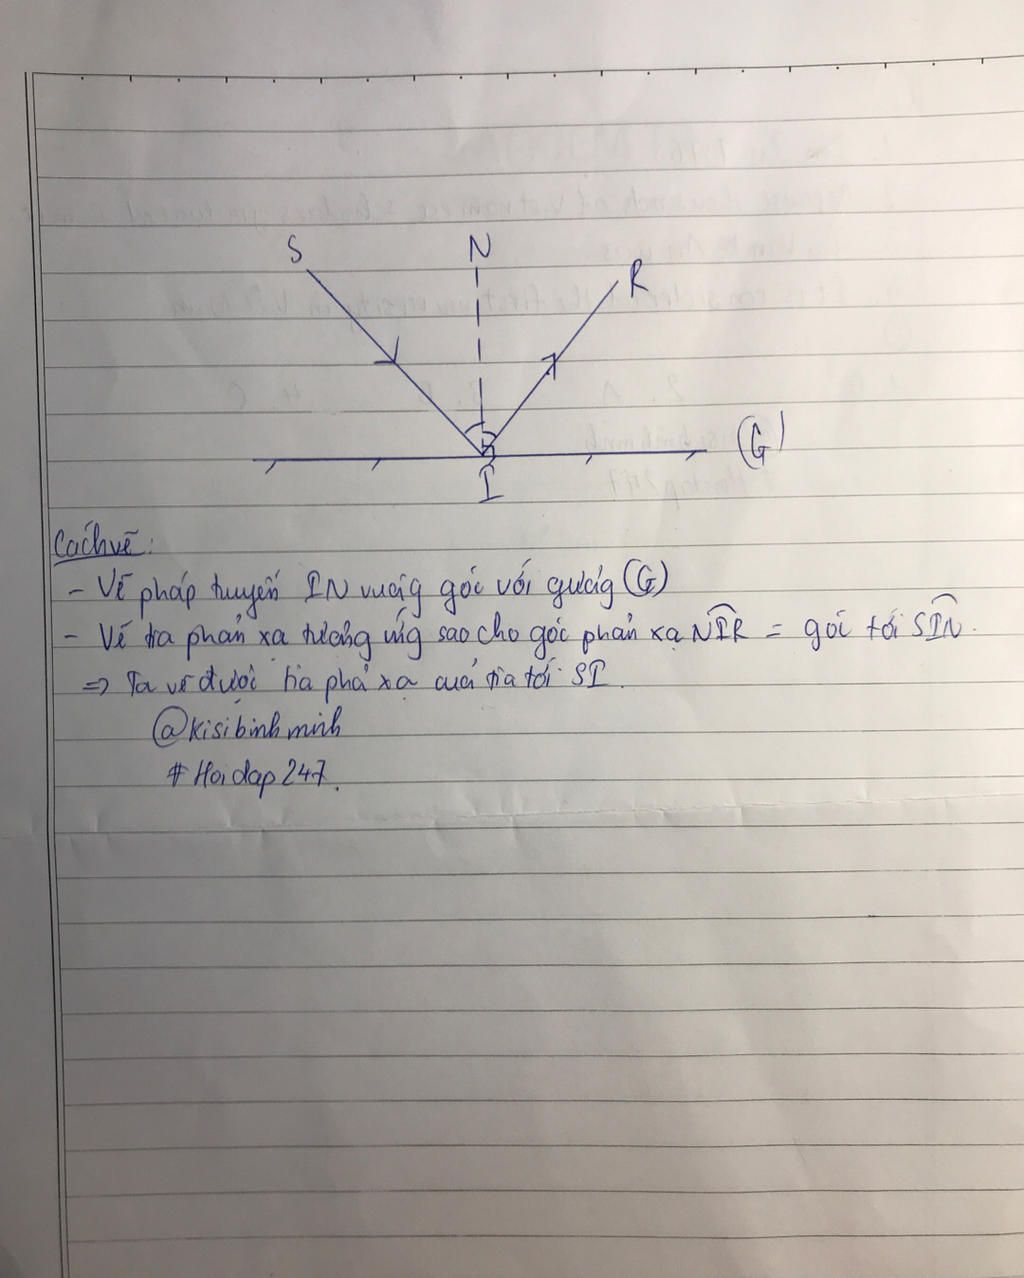 S
N
R
(G)
I
Cách vẽ:
- Vẽ pháp tuyến IN vuông góc với gương (G)
- Vẽ tia phản xạ tương ứng sao cho góc phản xạ NIR = góc tới SIN.
=> Ta vẽ được tia phả xạ của tia tới SI.
@kisibinhminh
#Hoidap247.